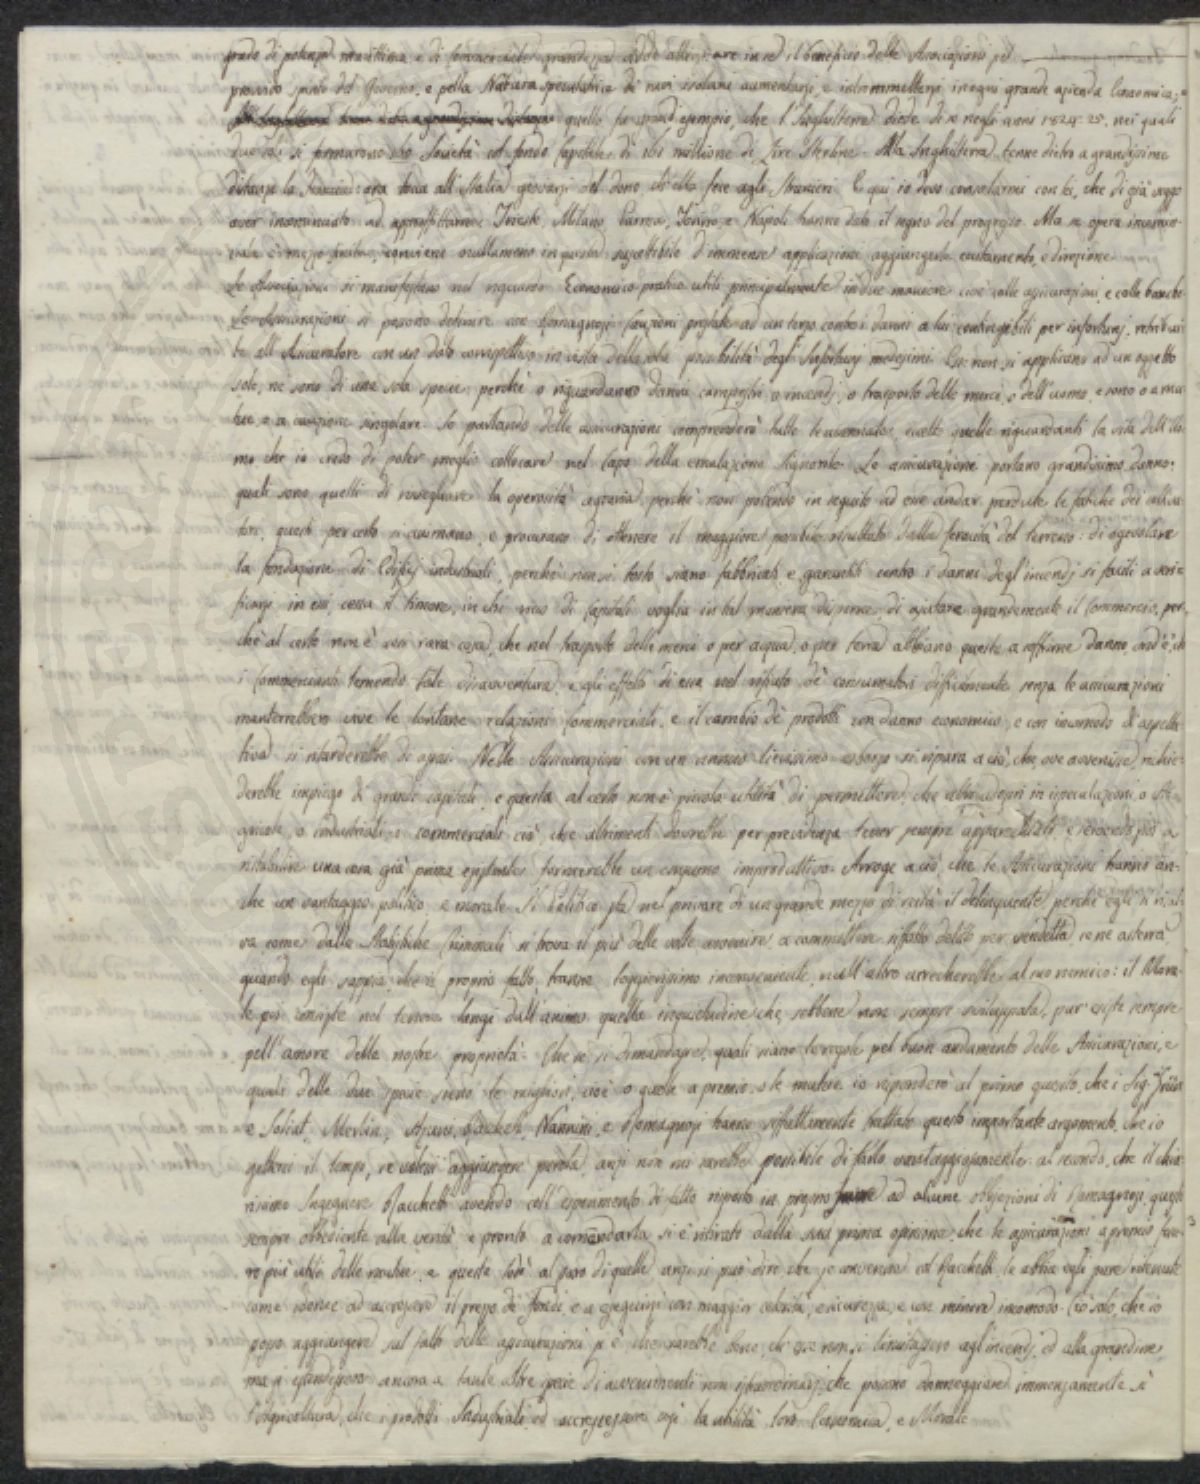 grado di potenza marittima, e di commerciale grandezza
provando spinto dal Governo, e dalla Natura speculatrice di suoi isolani aumentarsi, e intromettersi in ogni grande azienda Economica;
quello fu grand'esempio, che l'Inghilterra diede di se negli anni 1824-25, nei quali
due si formarono Società col fondo Capitale di millione di Lire Sterline. All'Inghilterra tenne dietro a grandissima
distanza la Francia: ora tocca all'Italia giovarsi del dono ch'ella fece agli Stranieri. E qui io devo consolarmi con lei, che di già veggo
aver incominciato ad approffittarne. Trieste, Milano, Parma, Torino, e Napoli hanno dato il segno del progresso. Ma se opera incomin-
ciata è mezzo finita, conviene nullameno in questa suscettibile d'immense applicazioni aggiungerle eccitamento, e direzione.
Le Associazioni si manifestano nel riguardo Economico-pratico utili principalmente in due maniere cioè colle assicurazioni, e colle banche.
Le Assicurazioni si possono definire con Romagnosi Cauzioni prestate ad un terzo contro i danni a lui contingibili per infortunj, retribui-
te all'Assicuratore con un dato corrispettivo in vista della sola possibilità degli Infortunj medesimi. Esse non si applicano ad un oggetto
solo, ne sono di una sola specie: perchè o riguardanno danni campestri, o incendj, o trasporto delle merci, o dell'uomo, e sono o a mu-
tua, o a cauzione singolare. Io parlando delle assicurazioni comprenderò tutte le accennate, eccetto quelle riguardanti la vita dell'Uo-
mo che io credo di poter meglio collocare nel Capo della emulazione Signorile. Le assicurazioni portano grandissimo
quali sono quelli di risvegliare la operosità agraria, perchè non potendo in seguito ad esse andar perdute le fatiche dei coltiva-
tori, questi per certo si animano, e procurano di ottenere il maggiore possibile risultato dalla feracità del terreno: di agevolare
la fondazione di Edifizj industriali, perchè non sì tosto siano fabbricati, e garantiti contro i danni degl'incendj sì facili a veri-
ficarsi in essi, cessa il timore, in chi ricco di Capitali voglia in tal maniera disporne: di ajutare grandemente il Commercio, per-
chè al certo non è cosa rara, che nel trasporto delle merci o per acqua, o per terra abbiano queste a soffrirne danno, ond'è, che
i Commercianti temendo tale disavventura, e gli effetti di essa nel rifiuto de' consumatori difficilmente senza le assicurazioni
manterrebbero vive le lontane relazioni Commerciali, e il cambio de' prodotti con danno economico, e con incomodo d'aspetta-
tiva si ritarderebbe di assai. Nelle Assicurazioni con un annuo tenuissimo esborso si ripara a ciò, che, ove avvenisse, richie-
derebbe impiego di grandi capitali, e questa al certo non è piccola utilità di permettere, che
gricole, o industriali, o commerciali ciò che altrimenti dovrebbe per previdenza tener sempre e poi a
ristabilire una cosa già prima esistente tornerebbe un consumo improduttivo. Arroge a ciò, che le Assicurazioni hanno an-
che un vantaggio politico, e morale. Il Politico sta nel privare di un grande mezzo di reità il delinquente, perchè egli
come dalle Statistiche Criminali si trova il più delle volte avvenire, a commettere siffatto delitto per vendetta, se ne asterrà,
quando egli sappia, che il proprio fatto, tranne leggerissimo inconveniente, null'altro arrecherebbe al suo nemico: il Mora-
le poi consiste nel tenere lungi dall'animo quella inquietudine che, sebbene non sempre sviluppata, pur esiste sempre
pell'amore delle nostre proprietà. Che se si dimandasse, quali siano le regole pel buon andamento delle Assicurazioni, e
quale delle due specie sieno le migliori, cioè o quelle a premio, o le mutue, io risponderò al primo quesito, che i Sig.
e Soliat, Merlin, Racchetti, Nannini, e Romagnosi hanno siffattamente trattato questo importante argomento, che io
getterei il tempo, se volessi aggiungere parola, anzi non mi sarebbe possibile di farlo vantaggiosamente: al secondo, che il chia-
rissimo Ingegnere Racchetti avendo coll'esperimento di fatto risposto in proprio favore ad alcune obbjezioni di Romagnosi, questi
sempre obbediente alla verità, e pronto a comendarla, si è ritirato dalla sua prima opinione, che le assicurazioni a premio fos-
ro più utili delle mutue, e queste lodò al paro di quelle, anzi si può dire che, se conveniva col Racchetti, le abbia egli pure ritenute
come idonee ad accrescere il prezzo de' fondi, e a eseguirsi con maggior celerità, e sicurezza, e con minore incomodo. Ciò solo, che io
posso aggiungere sul fatto delle assicurazioni si è che sarebbe bene, che esse non si limitassero agl'incendj, ed alla grandine,
ma si estendessero ancora a tante altre specie di avvenimenti non straordinarj, che possono danneggiare immensamente sì
l'Agricoltura, che i prodotti Industriali, ed accrescessero così la utilità loro Economica, e Morale.